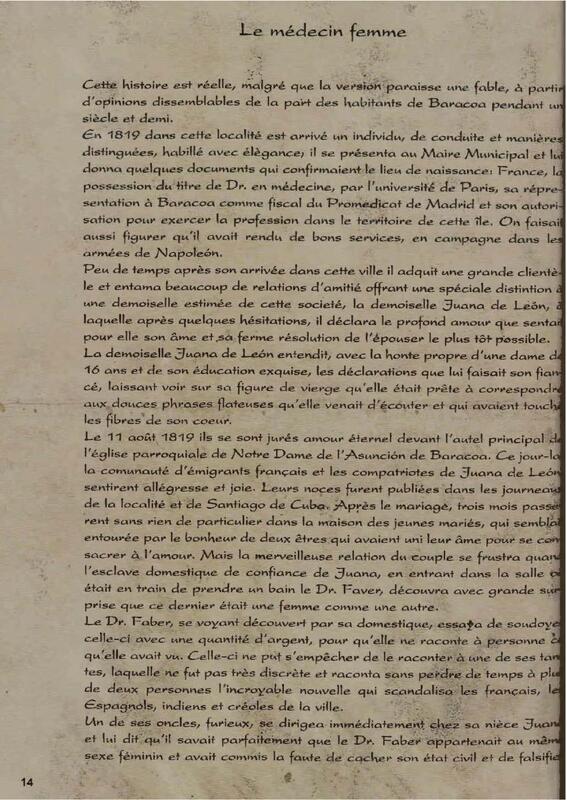 Le médecin femme
Cette histoire est réelle, malgré que la version paraisse une fable, à partir
d'opinions dissemblables de la part des habitants de Baracoa pendant un
siècle et demi.
En 1819 dans cette localité est arrivé un individu, de conduite et manières
distinguées, habillé avec élègance; il se présenta au Maire Municipal et lui
donna quelques documents qui confirmaient le lieu de naissance: France, la
possession du titre de Dr. en médecine, par l'université de Paris, sa répre-
sentation à Baracoa comme fiscal du Promedicat de Madrid et son autori-
sation pour exercer la profession dans le territoire de cette île. On faisait
aussi figurer qu'il avait rendu de bons services, en campagne dans les
armées de Napoleón.
Peu de temps après son arrivée dans cette ville il adquit une grande clientè-
le et entama beaucoup de relations d'amitié offrant une spéciale distintion à
une demoiselle estimée de cette societé, la demoiselle Juana de León, à
laquelle après quelques hésitations, il déclara le profond amour que sentai
pour elle son âme et sa ferme résolution de l'épouser le plus tôt possible.
La demoiselle Juana de León entendit, avec la honte propre d'une dame de
16 ans et de son éducation exquise, les déclarations que lui faisait son fian-
cé, laissant voir sur sa figure de vierge qu'elle était prête à correspondre
aux douces phrases flateuses qu'elle venait d'écouter et qui avaient touch
les fibres de son coeur.
Le 11 août 1819 ils se sont jurés amour éternel devant l'autel principal de
l'église parroquiale de Notre Dame de l'Asunción de Baracoa. Ce jour-la
la comunauté d'émigrants français et les compatriotes de Juana de León
sentirent allégresse et joie. Leurs noces furent publiées dans les journeaux
de la localité et de Santiago de Cuba. Après le mariage, trois mois passè
rent sans rien de particulier dans la maison des jeunes mariés, qui semblai
entourée par le bonheur de deux êtres qui avaient uni leur âme pour se con
sacrer à l'amour. Mais la merveilleuse relation du couple se frustra quan
l'esclave domestique de confiance de Juana, en entrant dans la salle
était en train de prendre un bain le Dr. Faver, découvra avec grande sur
prise que ce dernier était une femme comme une autre.
Le Dr. Faber, se voyant découvert par sa domestique, essaya de soudoye
celle-ci avec une quantité d'argent, pour qu'elle ne raconte à personne c
qu'elle avait vu. Celle-ci ne put s'empêcher de le raconter à une de ses tan
tes, laquelle ne fut pas très discrète et raconta sans perdre de temps à plu
de deux personnes l'incroyable nouvelle qui scandalisa les français, le
Espagnols, indiens et créoles de la ville.
Un de ses oncles, furieux, se dirigea immédiatement chez sa nièce Juan
et lui dit qu'il savait parfaitement que le Dr. Faber appartenait au mêm
sexe féminin et avait commis la faute de cacher son état civil et de falsifie
14